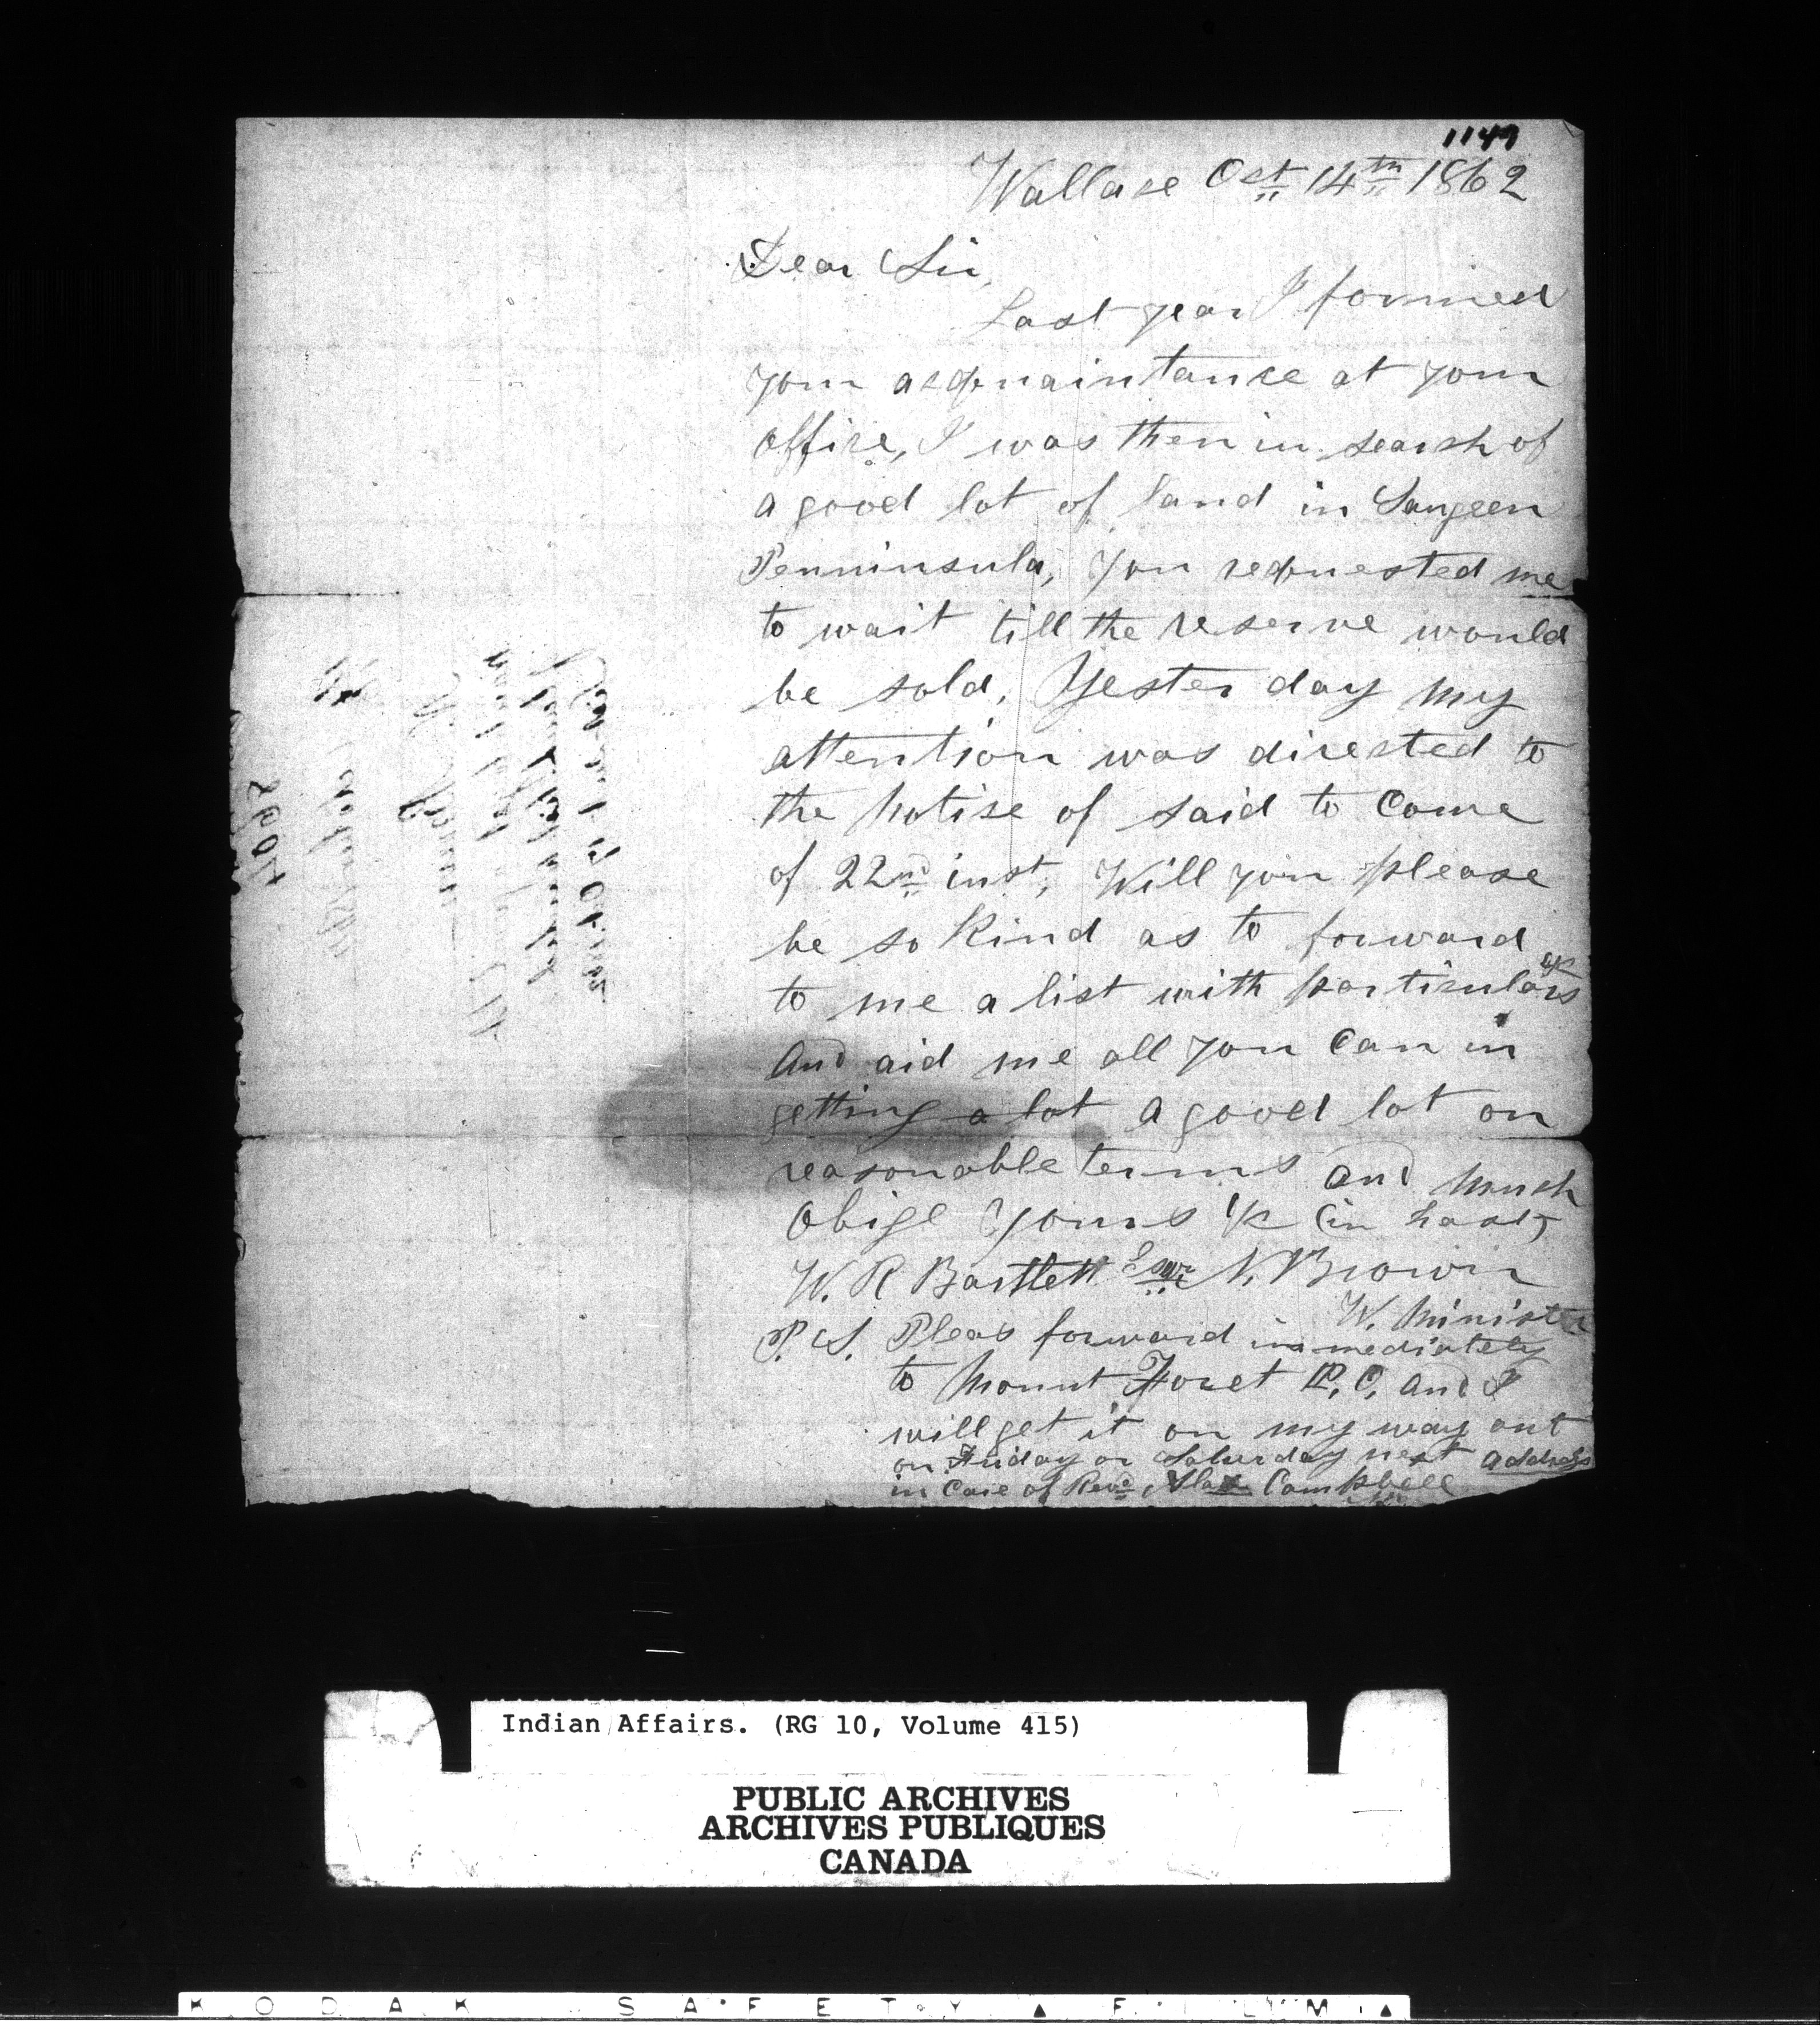 1149
Wallace Oct 14th 1862
Dear Sir,
Last year I formed
your acquaintance at your
office, I was then in search of
a good lot of land in Saugeen
Penninsula, you requested me
to wait till the reserve would
be sold, Yesterday my
attention was directed to
the notice of said to come
of 22nd inst, Will you please
be so kind as to forward
to me a list with particulars
and aid me all you can in
getting a lot a good lot on
reasonable terms and much
Obige yours &c (in hast)
W. R Bartlett Esqr N. Brown
W. Minister
P. S. Pleas forward immediately
to Mount Forest P. O. and I
will get it on my way out
on Friday or Saturday next address
in Care of Revd Campbell
Indian Affairs. (RG 10, Volume 415)
PUBLIC ARCHIVES
ARCHIVES PUBLIQUES
CANADA
KODAK SAFETY ▲ FILM ▲